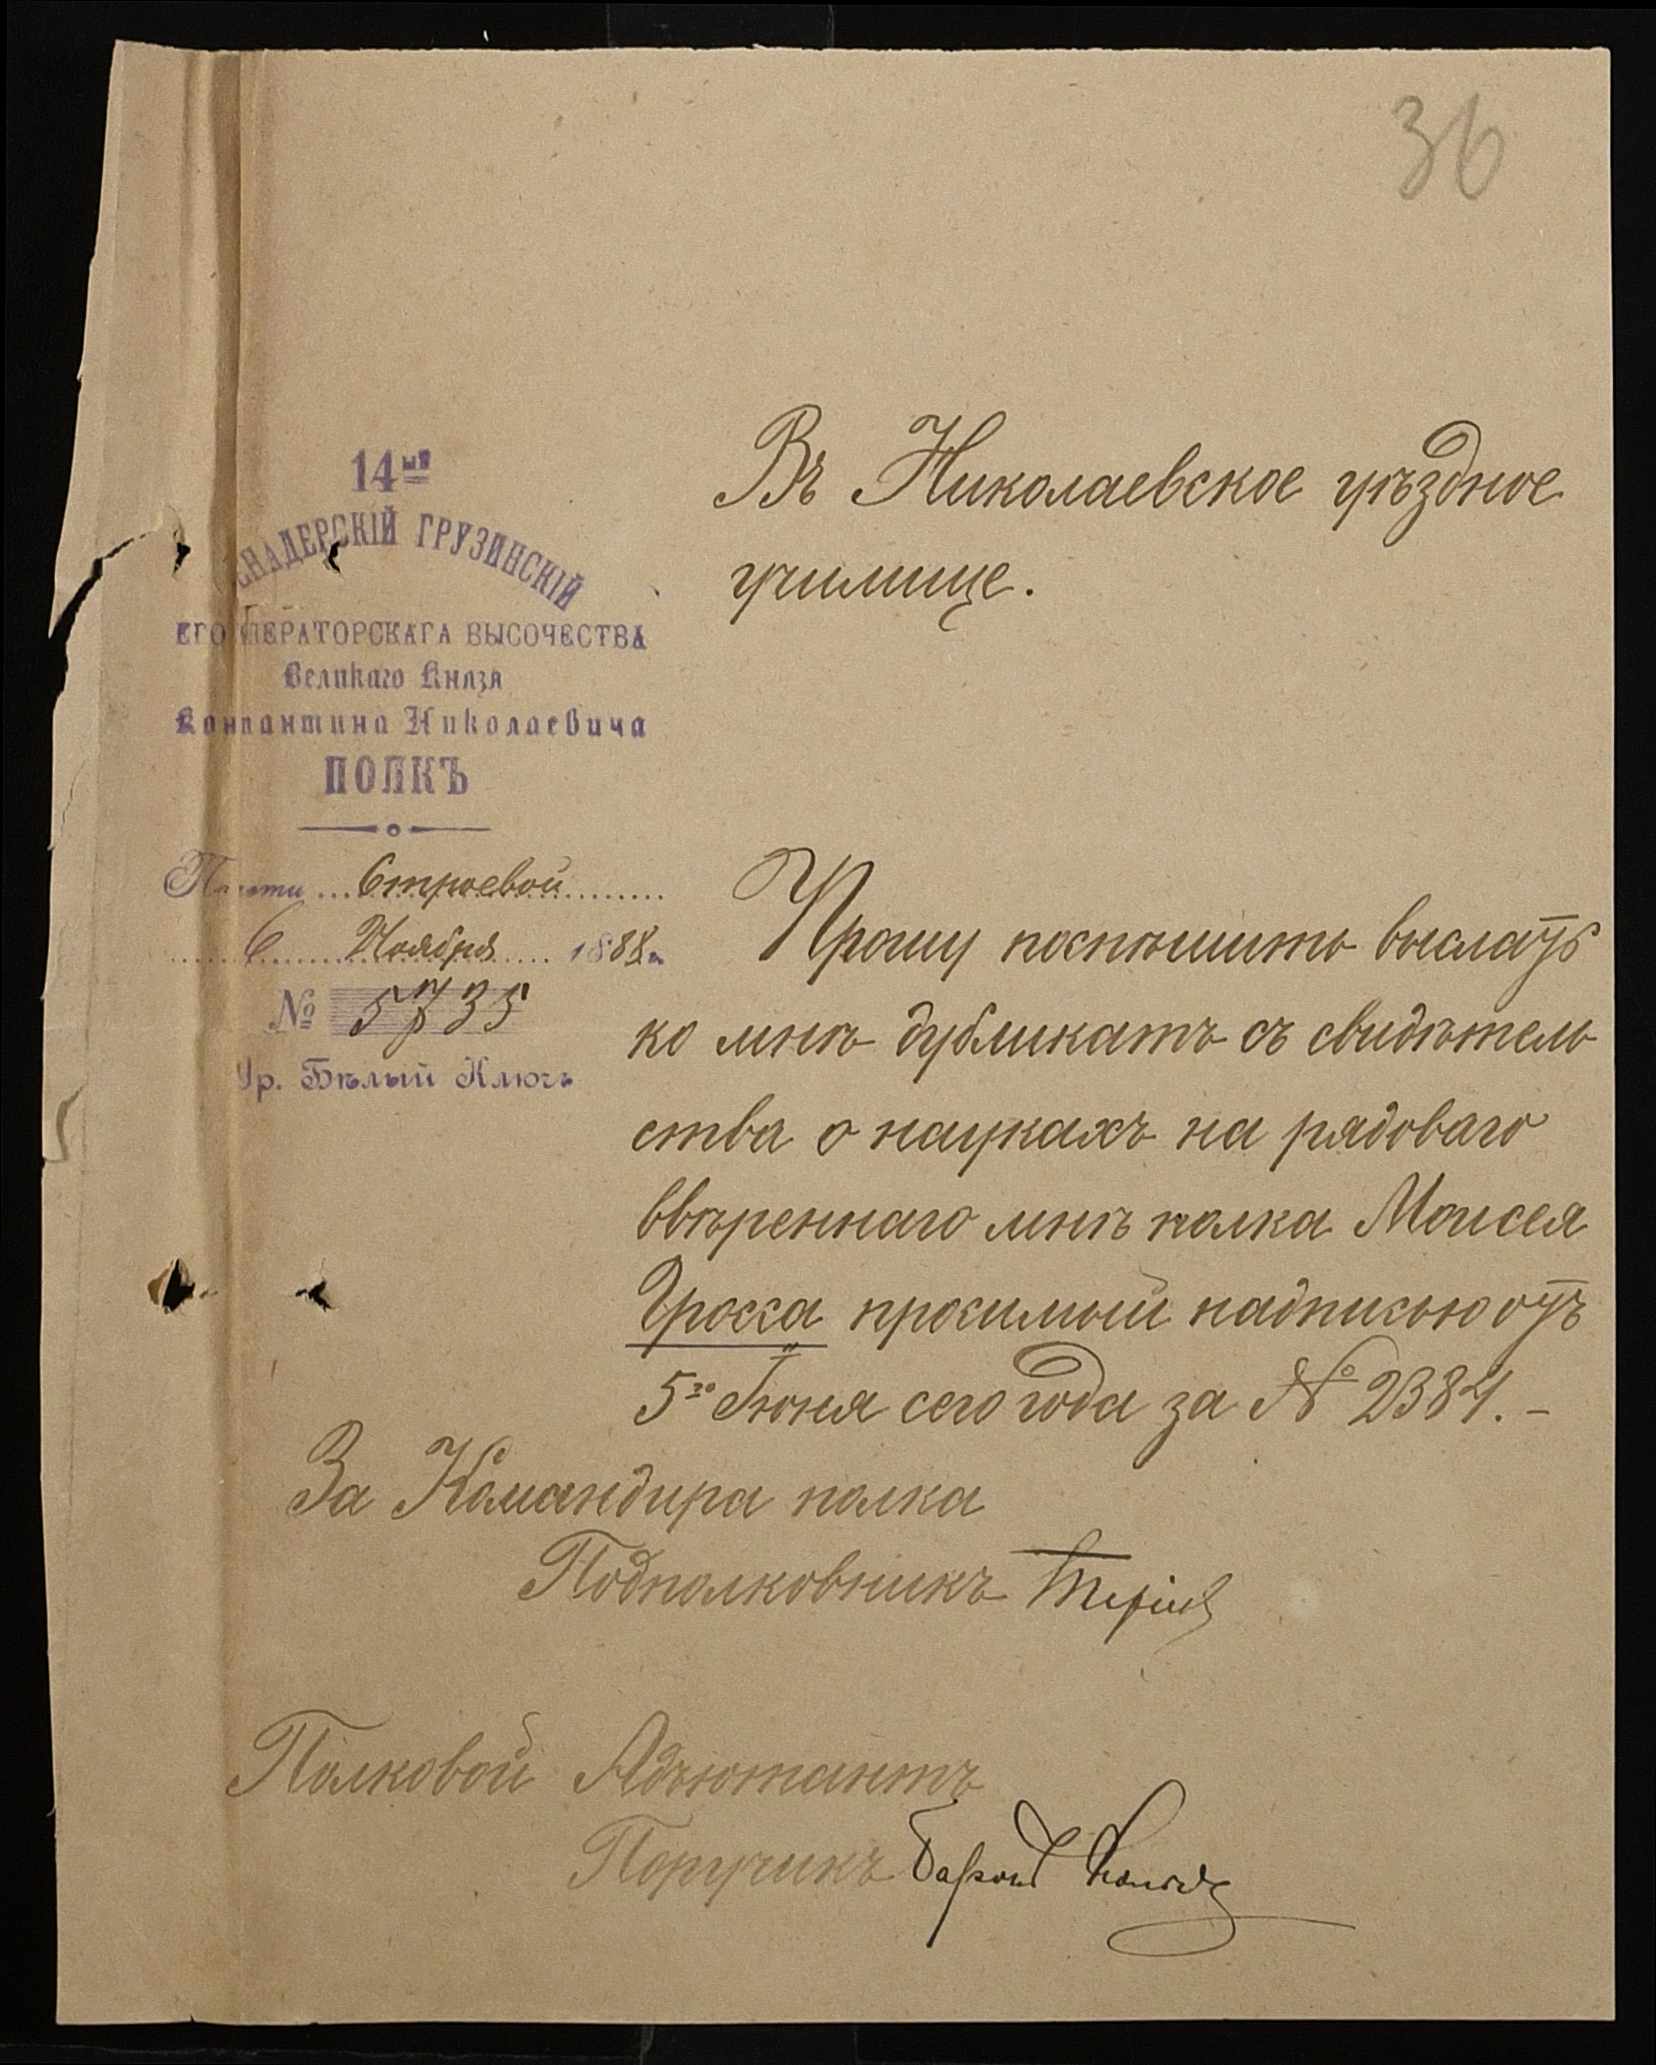 36
14ый
ЕНАДЕРСКІЙ ГРУЗИНСКІЙ
ЕГО ПЕРАТОРСКАГА ВЫСОЧЕСТВА
Великаго Князя
Константина Николаевича
ПОЛКЪ
Части Строевой
6 Ноября 1888 г.
№ 5735
Ур. Бѣлый Ключъ
Въ Николаевское уѣздное
училище.
Прошу поспѣшить выслать
ко мнѣ дубликатъ съ свидѣтель
ства о наукахъ на рядоваго
ввѣреннаго мнѣ полка Моисея
Гросса просимый надписью отъ
5го Іюня сего года за № 2384. -
За Командира полка
Подполковникъ
Полковой Адъютантъ
Поручикъ Баронъ